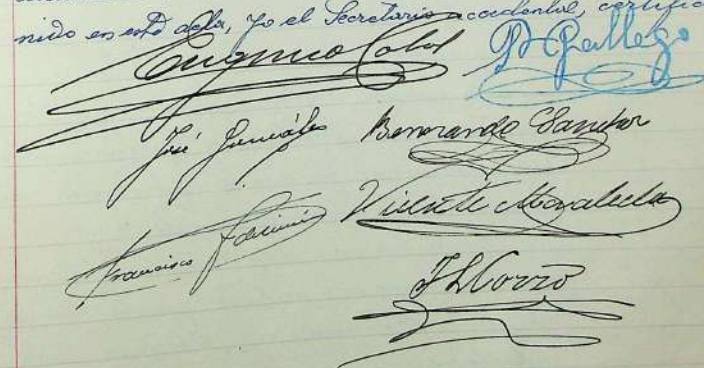 nido en esta acta, yo el Secretario accidental, certifico
Eugenio Cobol
P. Gallego
José González
Benerando Sanchez
Francisco
Vicente Moraleda